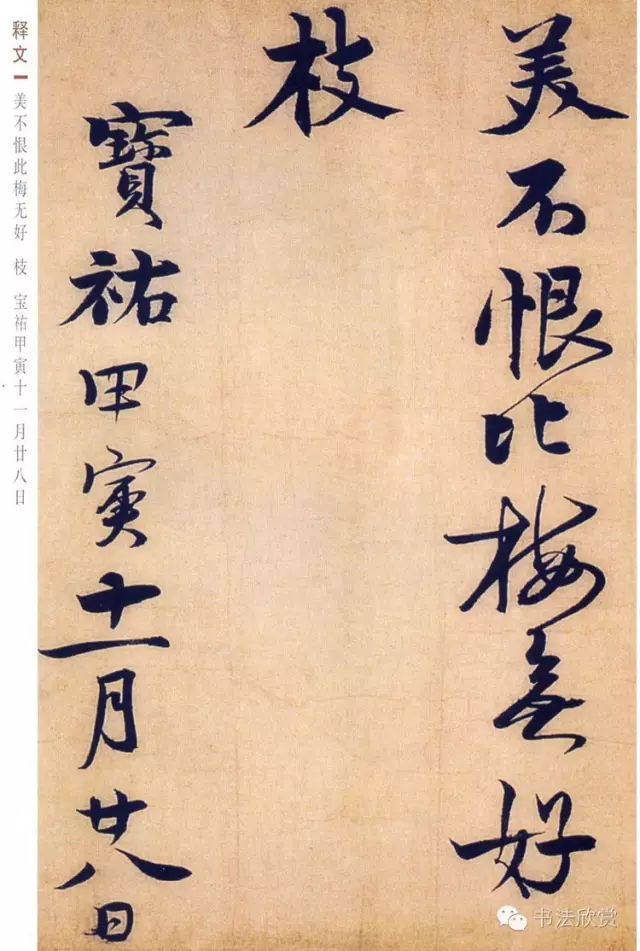 美不恨此梅無好
枝
寶祐甲寅十一月廿八日
释文 美不恨此梅无好 枝 宝祐甲寅十一月廿八日
书法欣赏